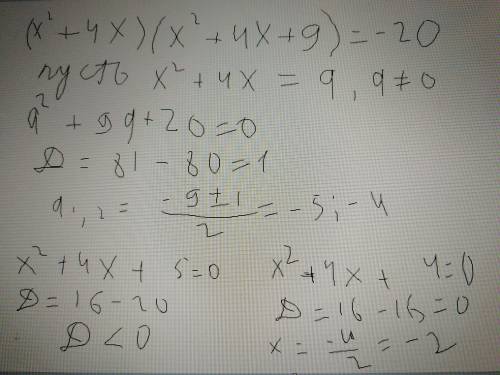 (x² + 4x)(x² + 4x + 9) = -20
пусть x² + 4x = q, q ≠ 0
q² + 9q + 20 = 0
D = 81 - 80 = 1
q₁,₂ = (-9 ± 1)/2 = -5; -4
x² + 4x + 5 = 0
D = 16 - 20
D < 0
x² + 4x + 4 = 0
D = 16 - 16 = 0
x = -4/2 = -2